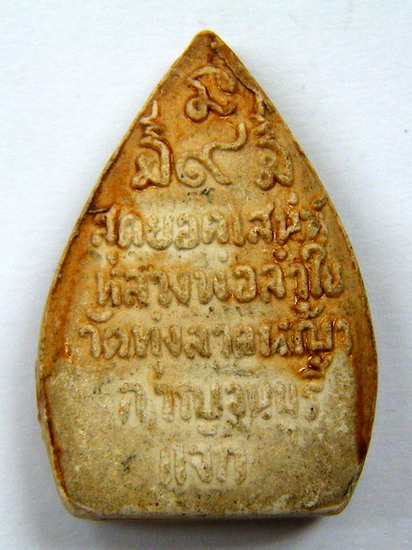 มิ
มี ๙ มิ
สุดยอดเสน่ห์
หลวงพ่อลำใย
วัดทุ่งลาดหญ้า
กาญจนบุรี
แจก